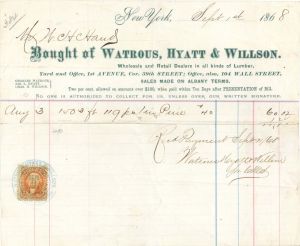 New York, Sept 1st 1868
Mr W. H. Hand
Bought of WATROUS, HYATT & WILLSON.
Wholesale and Retail Dealers in all kinds of Lumber,
Yard and Office, 1st AVENUE, Cor. 39th STREET; Office, also, 104 WALL STREET.
SALES MADE ON ALBANY TERMS.
Two per cent. allowed on amounts over $100, when paid within Ten Days after PRESENTATION OF BILL
NO ONE IS AUTHORIZED TO COLLECT FOR US, UNLESS OVER OUR WRITTEN SIGNATURE.
Aug 3 1503 ft Pine 40 60.12
Recd Payment Sept
Watrous Hyatt & Willson